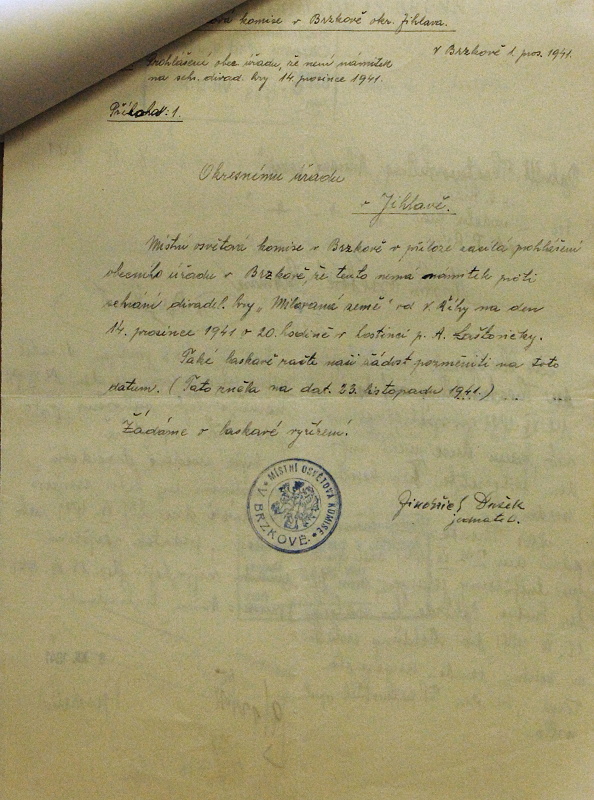 komise v Brzkově okr. Jihlava.
V Brzkově 1. pros. 1941.
Prohlášení obec. úřadu, že není námitek
na sehr. divad. hry 14. prosince 1941.
Příloha: 1.
Okresnímu úřadu
v Jihlavě.
Místní osvětová komise v Brzkově v příloze zasílá prohlášení
obecního úřadu v Brzkově, že tento nemá námitek proti
sehrání divadel. hry „Milovaná země" od V. Říhy na den
14. prosince 1941 v 20. hodině v hostinci p. A.
Také laskavě račte naši žádost pozměniti na toto
datum. (Tato zněla na dat. 23. listopadu 1941.)
Žádáme o laskavé vyřízení.
MÍSTNÍ OSVĚTOVÁ KOMISE
V BRZKOVĚ
Jindřich Dušek
jednatel.